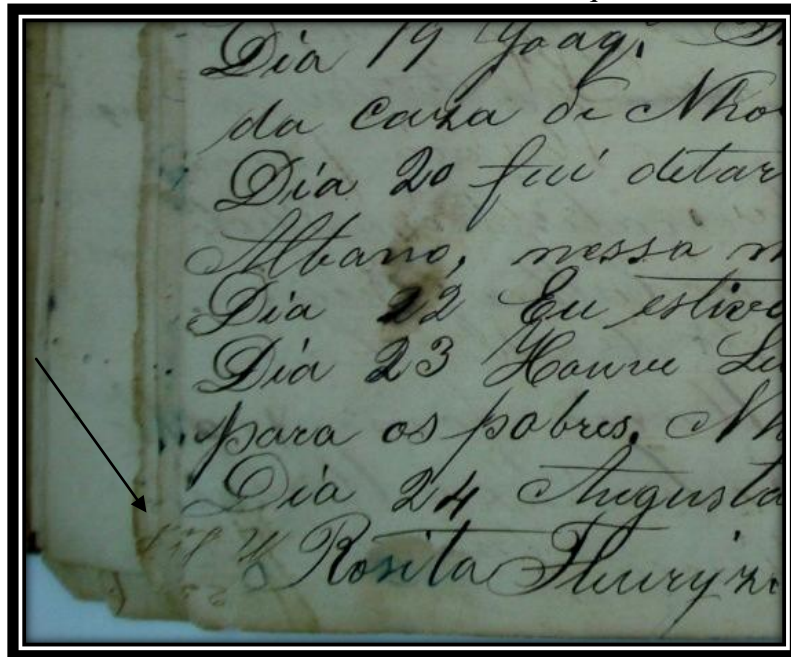 Dia 19 Joaq.
da caza de Nho
Dia 20 fui detar
Albano, nessa
Dia 22 Eu estive
Dia 23 Houve
para os pobres.
Dia 24 Augusta
Rosita Fleury